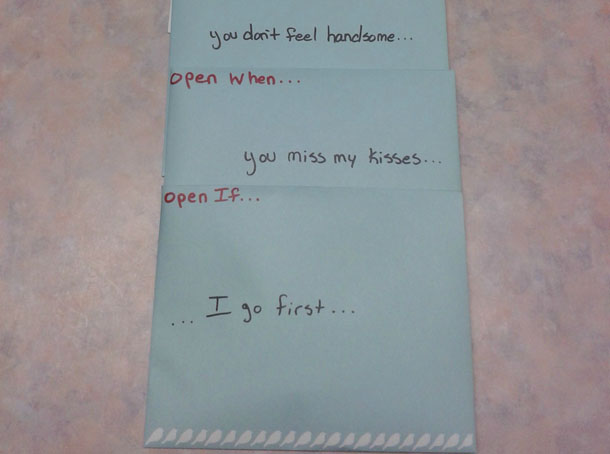 you don't feel handsome...
open when...
you miss my kisses...
open If...
... I go first...